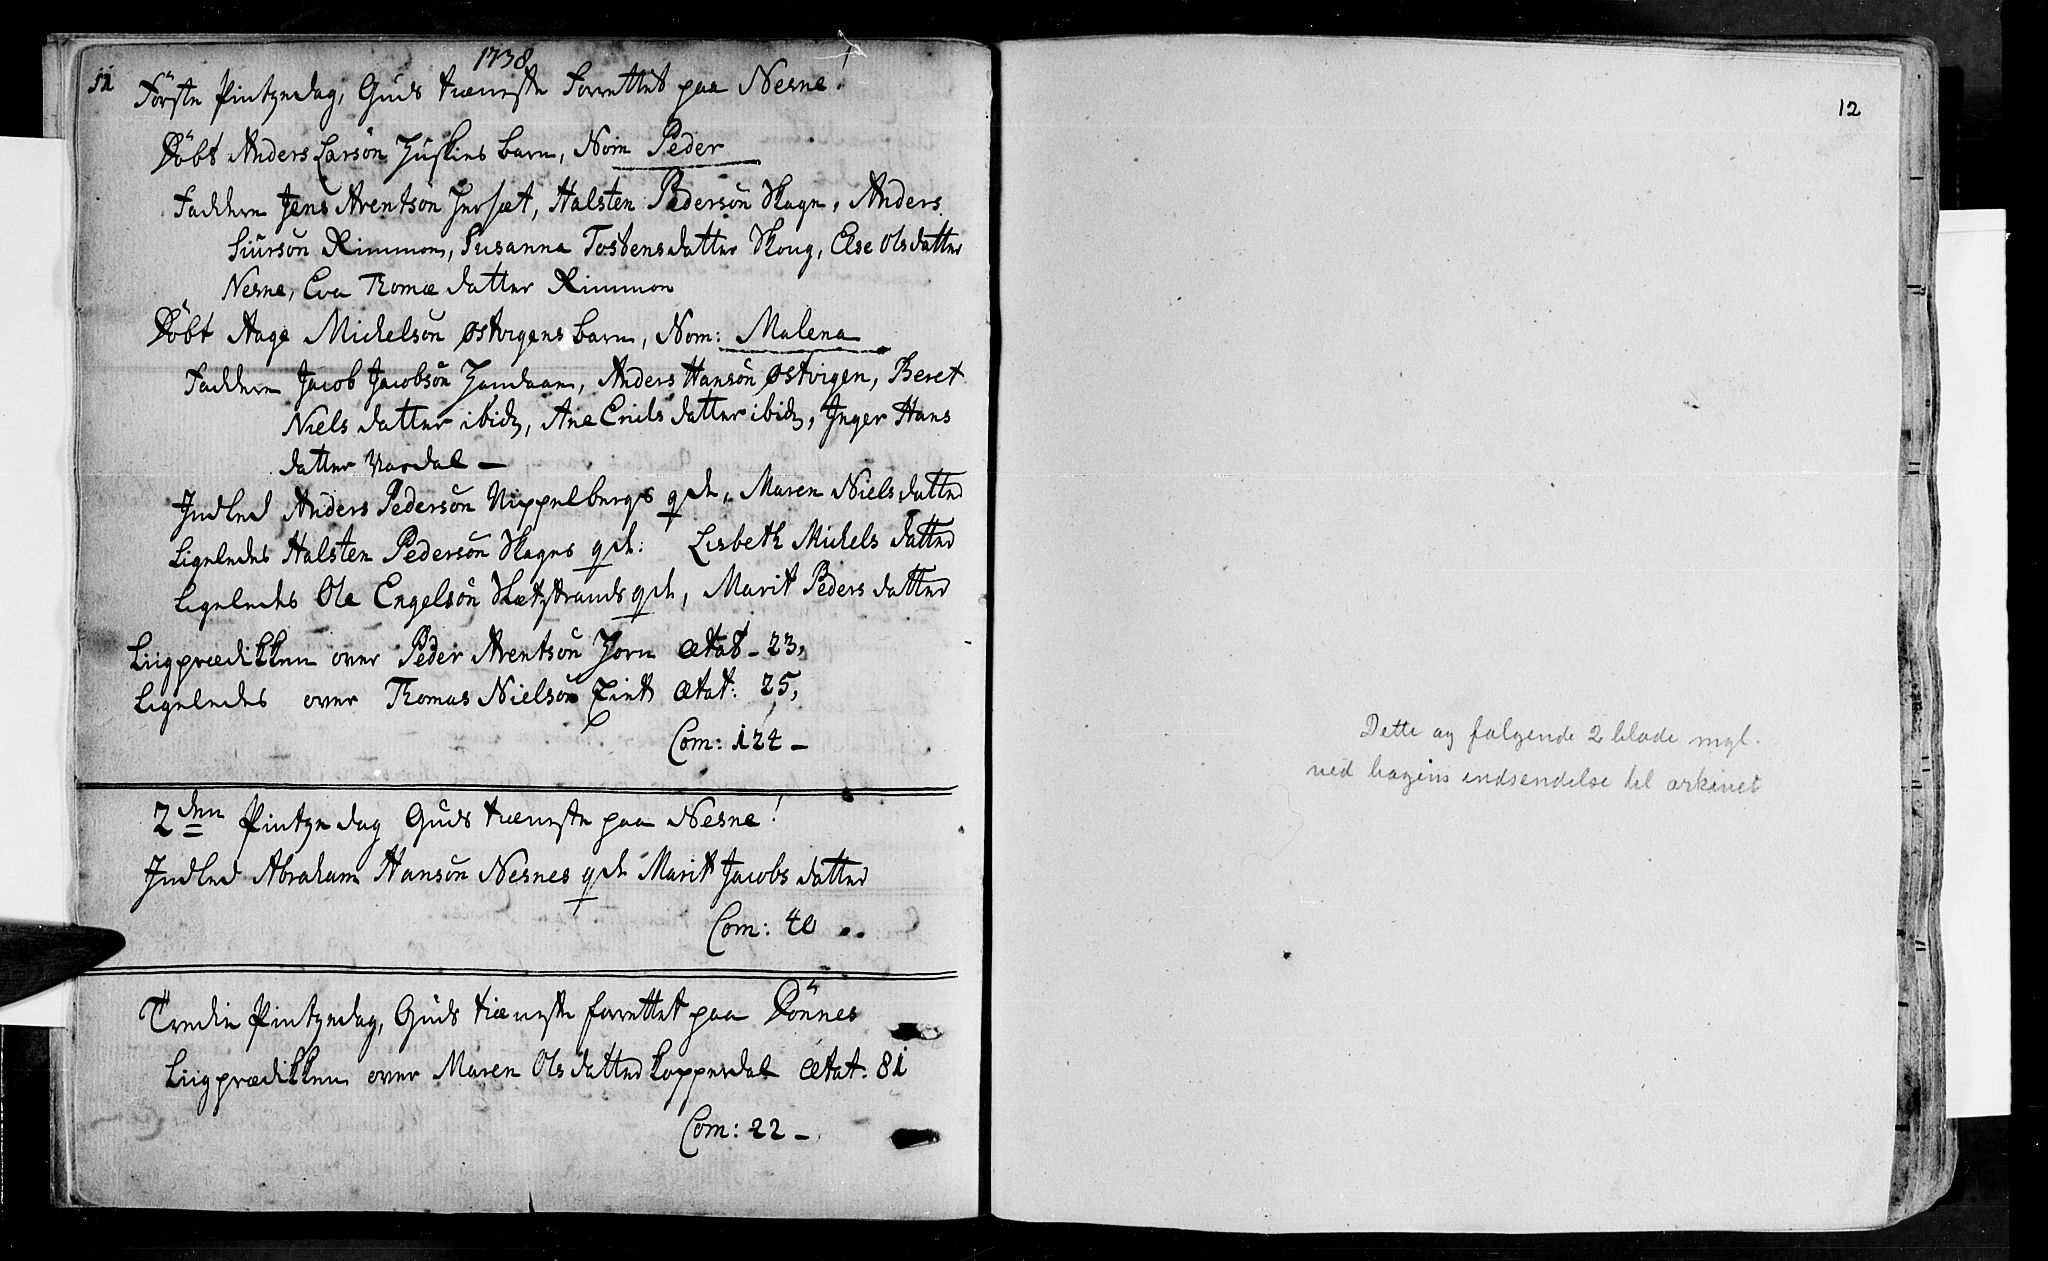 1738
Förste Pintzedag, Guds tieneste forrettet paa Nesne!
Döbt Anders Larsön Huskins barn, Nom Peder
Faddern Jens Arentsön Inersæt, Halsten Pedersön Skagn, Anders
Siursön Rimmon, Susanna Tostensdatter Skoug, Else Olsdatter
Nesne, Eva Thomæ datter Rimmon
Döbt Aage Michelsön Østvigens barn, Nom: Malena
Faddern Jacob Jacobsön, Anders Hansön Østvigen, Beret
Niels datter ibid, Ane Erichs datter ibid, Inger Hans
datter Vardal –
Indled Anders Pedersön Nippelbergs qde, Maren Niels datter
Ligeledes Halsten Pedersön Skages qde: Lisbeth Michels datter
Ligeledes Ole Engelsön Slætstrands qde, Marit Peders datter
Liigprædikken over Peder Arentsön Zorn ætat – 23,
Ligeledes over Thomas Nielsön Zint ætat: 25,
Com: 124 –
2den Pintze dag Guds tieneste paa Nesne!
Indled Abraham Hansön Nesnes qde Marit Jacobs datter
Com: 40
Tredie Pintzedag, Guds tieneste forrettet paa Dönnes
Liigprædikken over Maren Olsdatter Kopperdal ætat. 81
Com: 22 –
12
Dette og følgende 2 blade mgl.
ved bogens indsendelse til arkivet